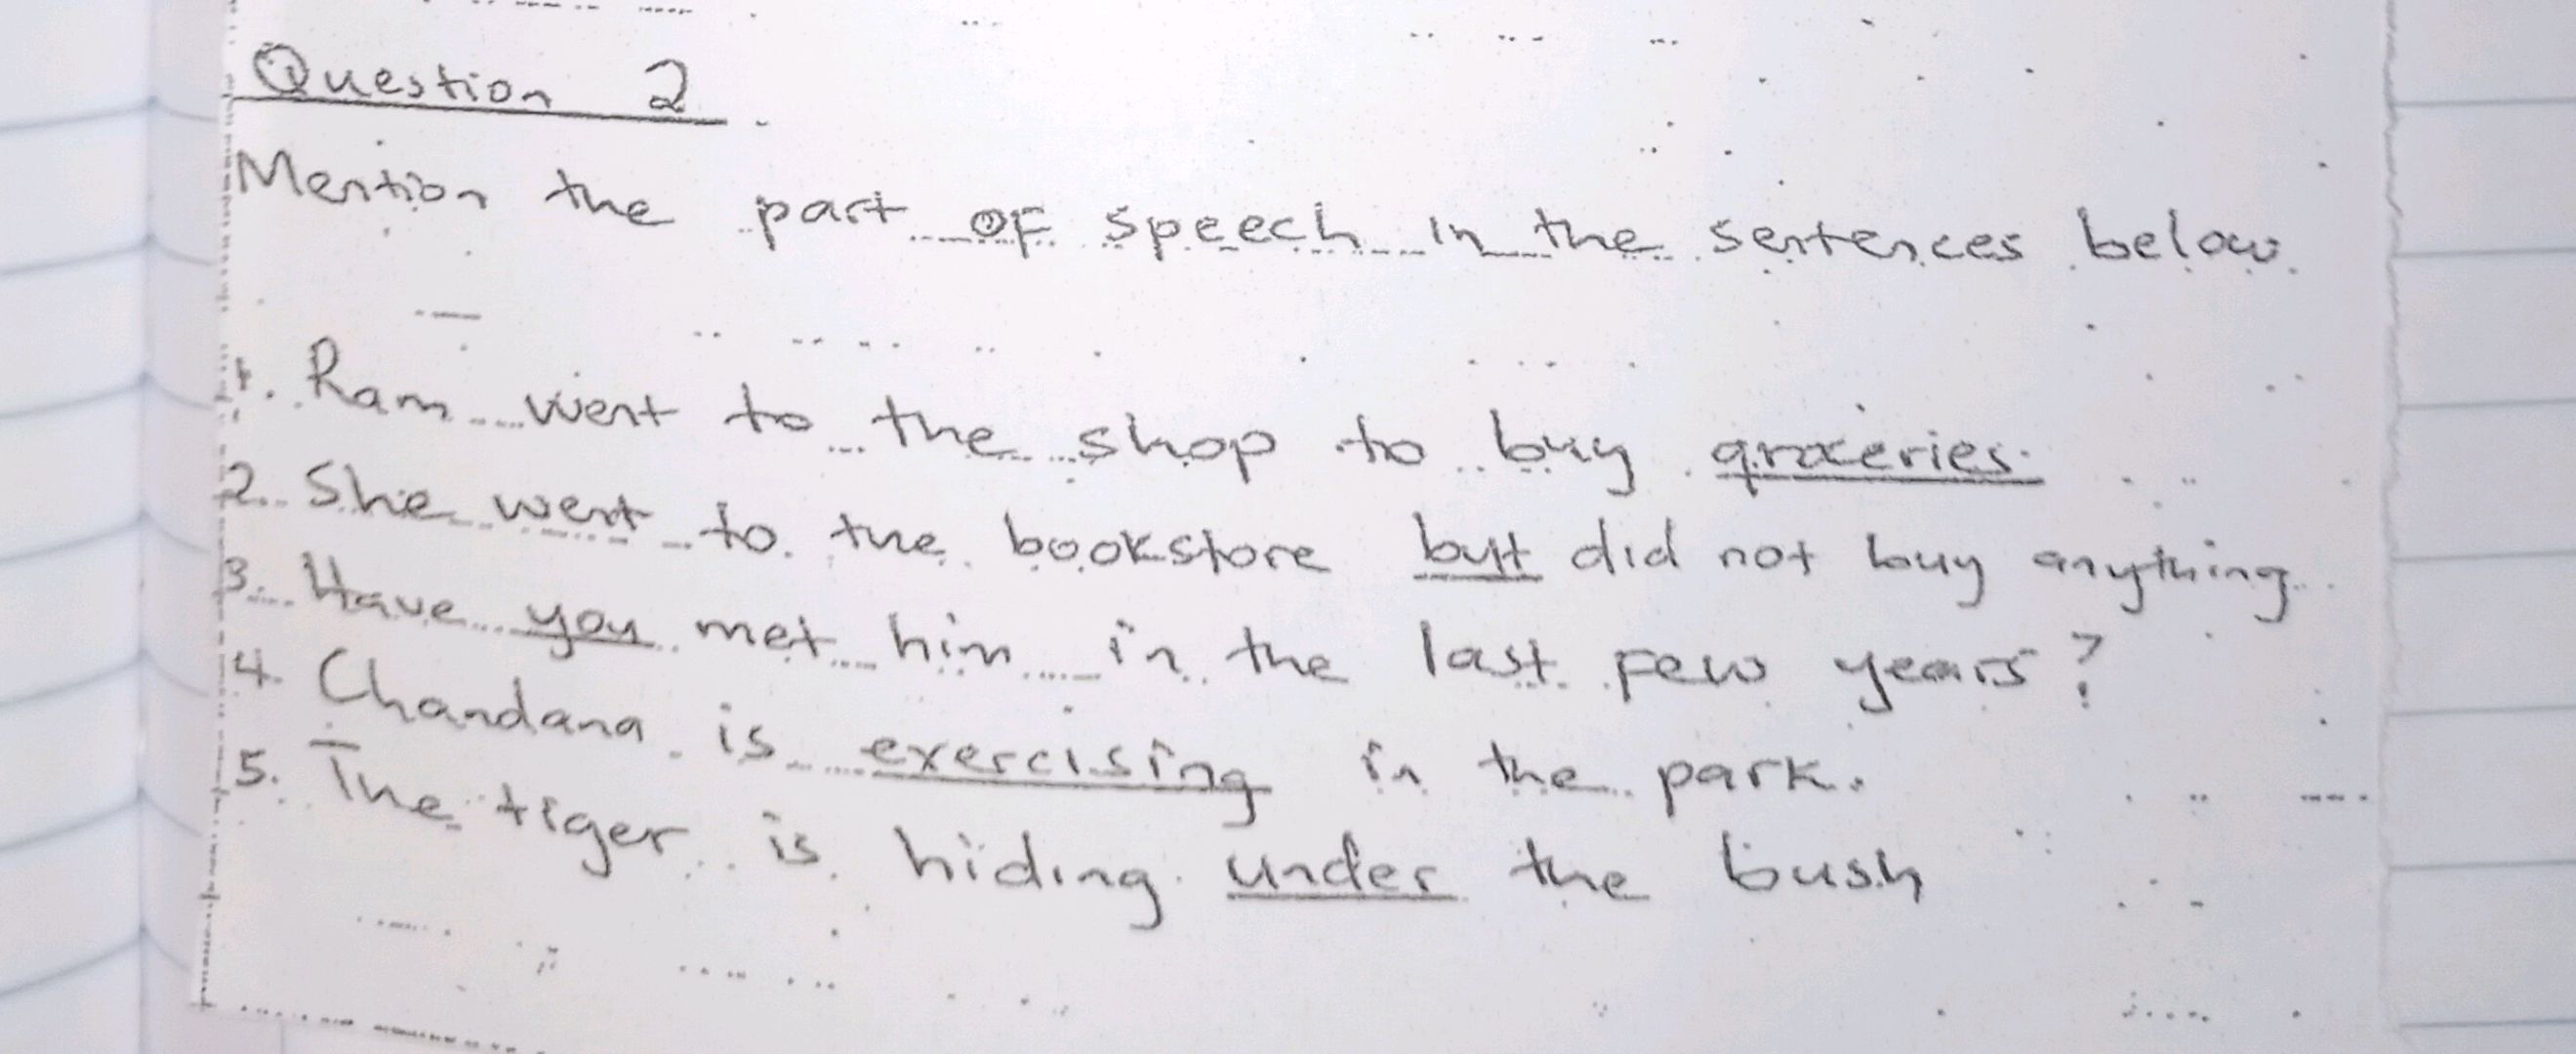 Question 2
Mention the part of speech in the sentences below.
1. Ram went to the shop to buy groceries.
2. She went to the bookstore but did not buy anything.
3. Have you met him in the last few years?
4. Chandana is exercising in the park.
5. The tiger is hiding under the bush